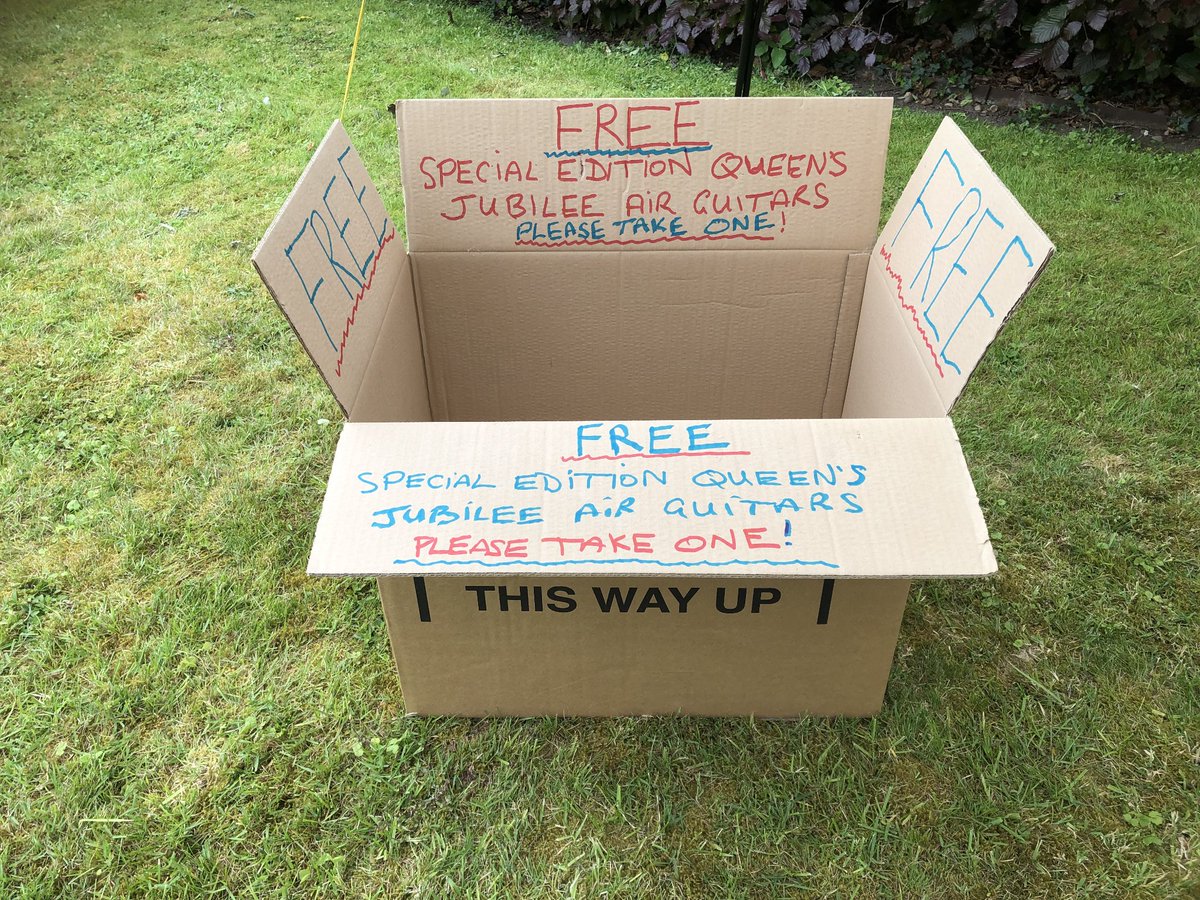 FREE
SPECIAL EDITION QUEEN'S
JUBILEE AIR GUITARS
PLEASE TAKE ONE!
FREE
FREE
FREE
SPECIAL EDITION QUEEN'S
JUBILEE AIR GUITARS
PLEASE TAKE ONE!
THIS WAY UP